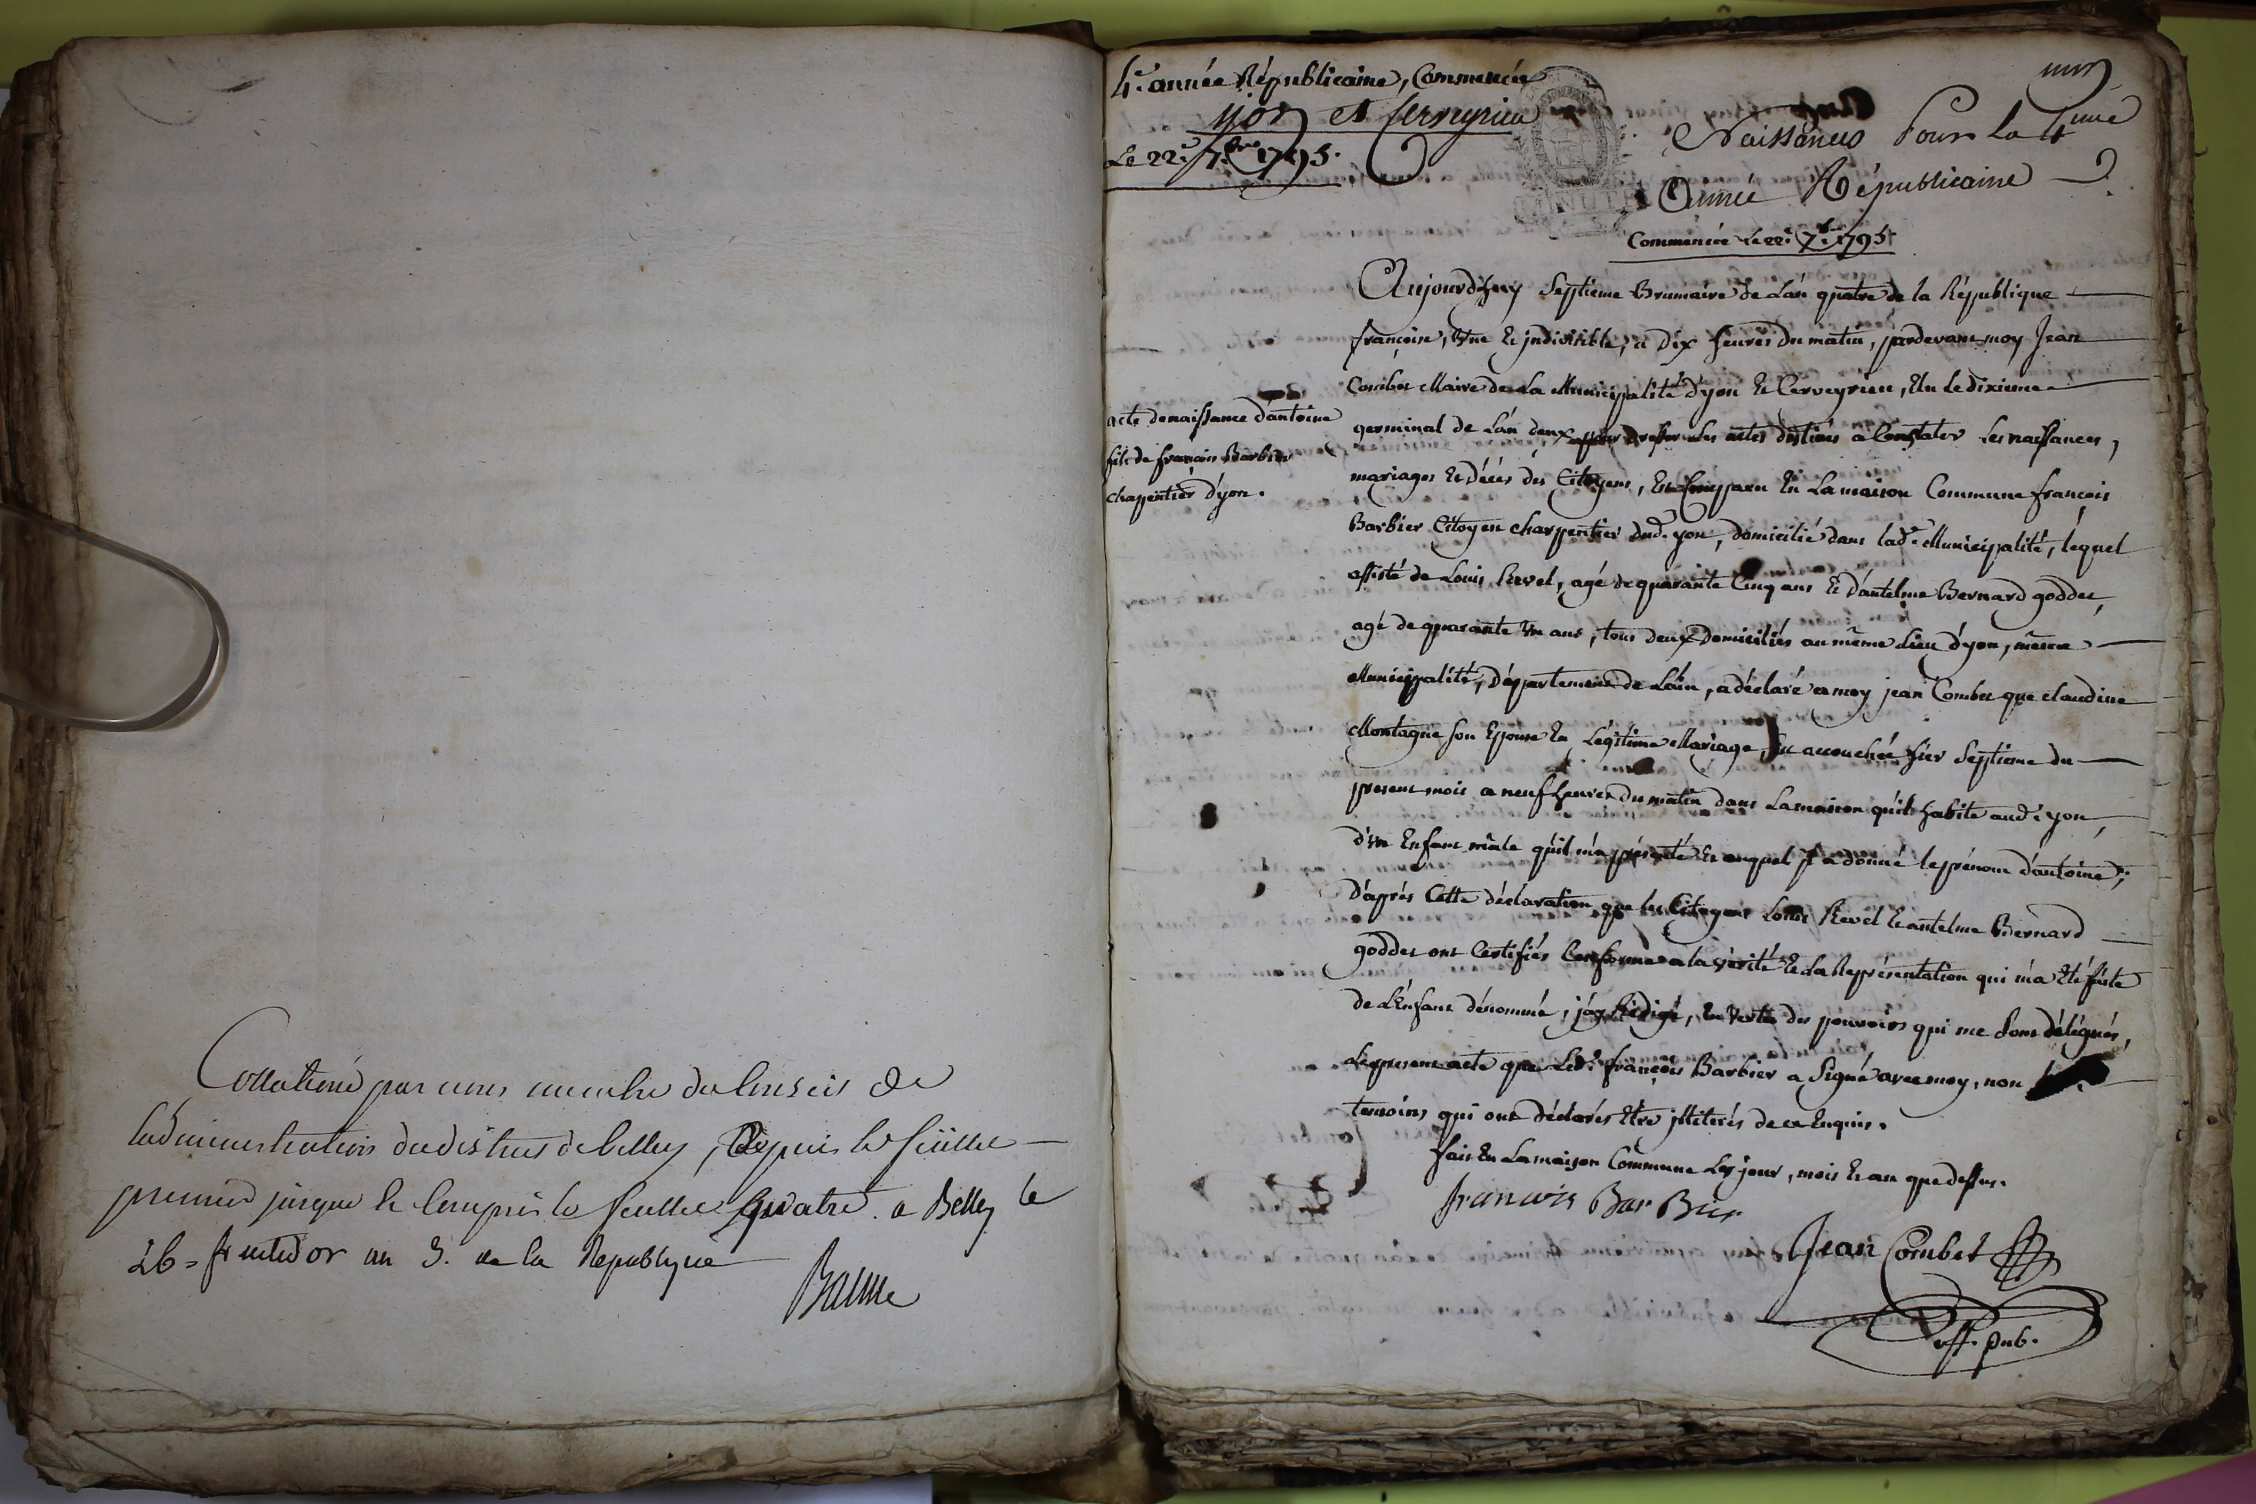 Collationé par nous membre du Conseil de
Ladministration du district de belley, Depuis le feuillet
premier jusque & Compris le feuillet quatre. a Belley le
26 = fructidor an 3. de la Republique
Balme
4.e année Républicaine, Commencée
yion et Cerveyrieu
Le 22.e 7.bre 1795.
un
Naissances Pour la 4.eme
Année Républicaine
Commencée Le 22.e 7.bre 1795
acte de naissance d'antoine
fils de françois Barbier
charpentier d'yon.
Aujourd'huy Septieme Brumaire de L'an quatre de la République
françoise, Une & jndivisible, a Dix heures du matin, pardevant moy Jean
Combet Maire de La Municipalité d'yon & Cerveyrieu, Elu le dixieme
germinal de L'an deux pour dresser Les actes destinés a Constater Les naissances,
mariages & Décés des Citoyens, Est Comparu En La maison Commune françois
Barbier Citoyen charpentier dud. yon, domicilié dans lad.e Municipalité, lequel
assisté de Louis Revel, agé de quarante Cinq ans & D'antelme Bernard goddet,
agé de quarante Un ans, tous deux Domiciliés au même Lieu d'yon, même
Municipalité, Département de L'ain, a déclaré a moy jean Combet que claudine
Montagne son Epouse En Légitime Mariage, Est accouchée hier Septieme du
present mois a neuf heures du matin dans La maison qu'il habite aud. yon,
d'un Enfant mâle qu'il m'a présenté & auquel jl a donné le prénom d'antoine,
D'aprés Cette déclaration que les Citoyens Louis Revel & antelme Bernard
goddet ont Certifiés Conforme a la vérité & La Représentation qui m'a Eté faite
de L'Enfant dénommé, j'ay Rédigé, En Vertu des pouvoirs qui me sont délégués,
Le present acte que Led. françois Barbier a Signé avec moy, non
temoins qui ont Déclarés Etre jlliterés de ce Enquis.
fait En La maison Commune Les jour, mois & an que dessus.
francois Bar Bier
Jean Combet
off. pub.